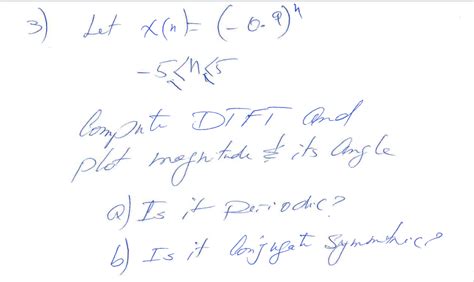 3) Let x(n) = (-0.9)^n
-5≤n≤5
Compute DTFT and
plot magnitude & its Angle
a) Is it periodic?
b) Is it Conjugate Symmetric?